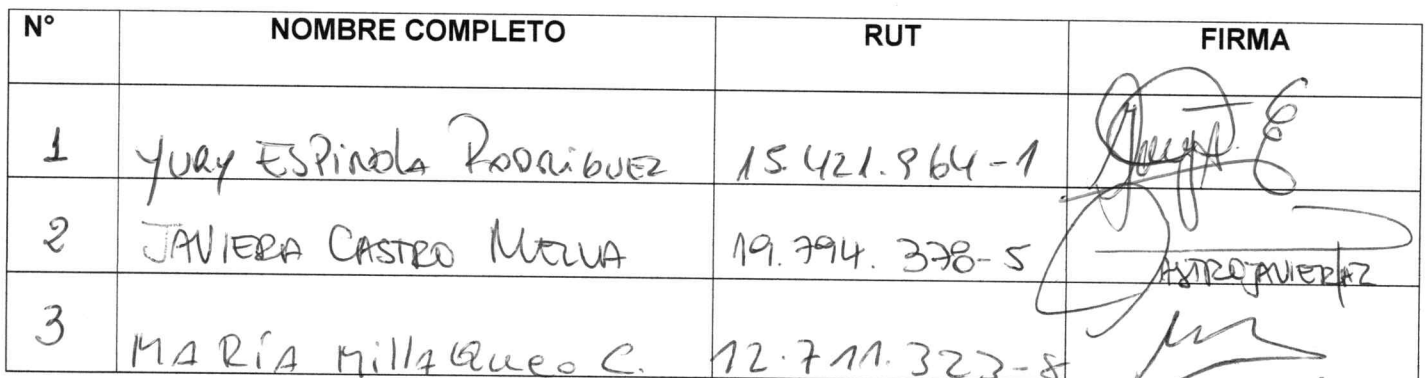 N° NOMBRE COMPLETO RUT FIRMA
1 YURY ESPINOLA RODRIGUEZ 15.421.964-1
2 JAVIERA CASTRO 19.794.378-5
3 MARÍA MillAQueo C. 12.711.323-8